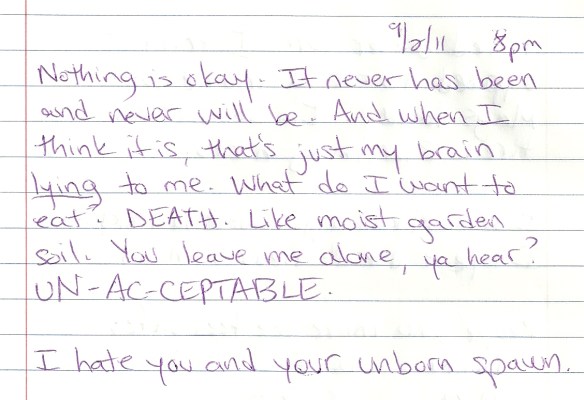 9/2/11 8pm
Nothing is okay. It never has been
and never will be. And when I
think it is, that's just my brain
lying to me. What do I want to
eat? DEATH. Like moist garden
soil. You leave me alone, ya hear?
UN-AC-CEPTABLE.
I hate you and your unborn spawn.